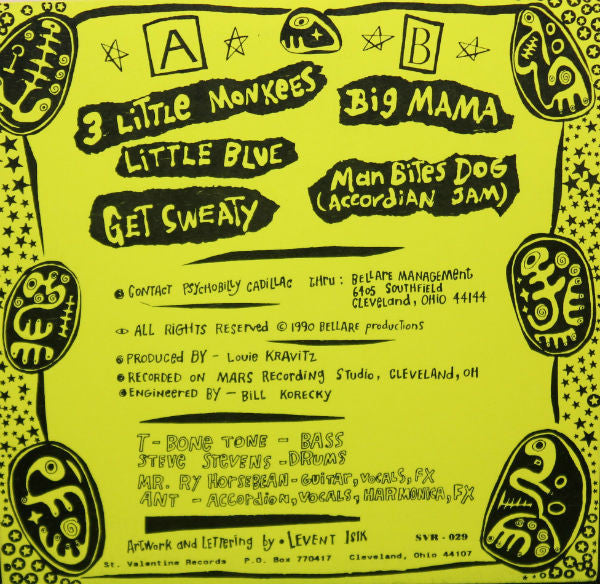 A
B
3 LITTLE MONKEES
LITTLE BLUE
GET SWEATY
Big MAMA
Man BiTES DOG
(ACCORDiAN JAM)
CONTACT PSYCHOBILLY CADILLAC thru: BELLARE MANAGEMENT
6905 SOUTHFIELD
CLEVELAND, OHIO 44144
ALL RIGHTS RESERVED © 1990 BELLARE productions
PRODUCED BY - Louie KRAVITZ
RECORDED ON MARS RECORDING STUDIO, CLEVELAND, OH
ENGINEERED BY - BILL KORECKY
T-BONE TONE - BASS
STEVE STEVENS - DRUMS
MR. RY HORSEBEAN - GUITAR, VOCALS, FX
ANT - ACCORDION, VOCALS, HARMONICA, FX
Artwork and Lettering by • LEVENT ISIK
SVR - 029
St. Valentine Records P.O. Box 770417 Cleveland, Ohio 44107